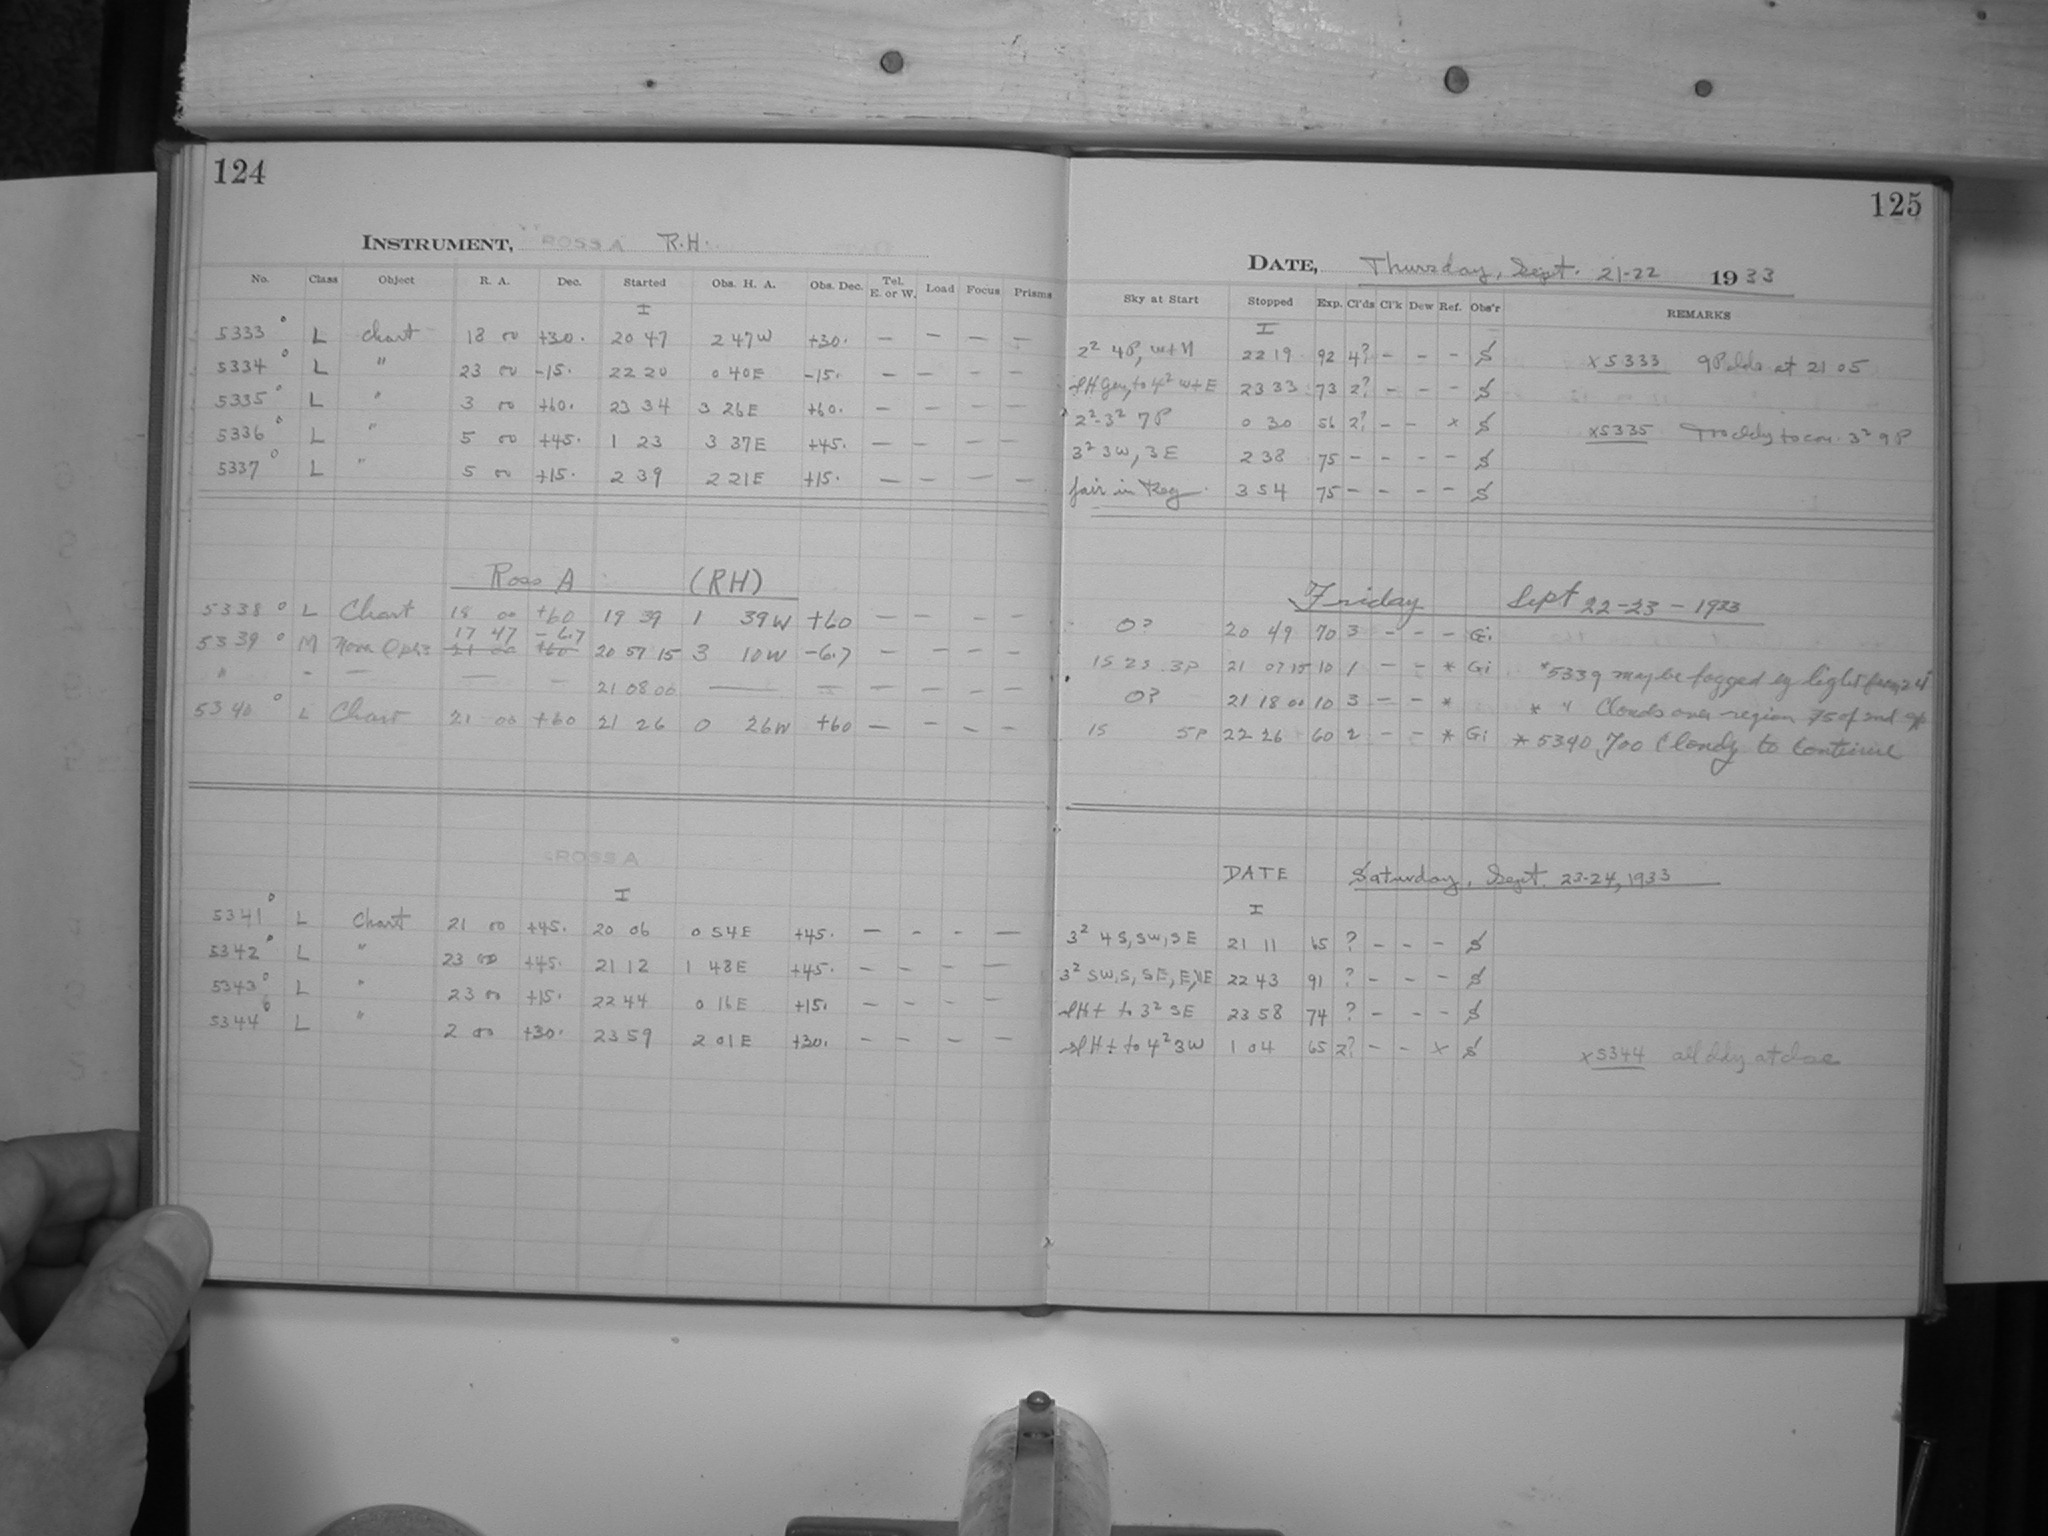 124
INSTRUMENT, ROSS A R.H.
No. Class Object R. A. Dec. Started Obs. H. A. Obs. Dec. Tel. E. or W. Load Focus Prisms
I
5333 ° L Chart 18 00 +30. 20 47 2 47W +30. — — — —
5334 ° L " 23 00 -15. 22 20 0 40E -15. — — — —
5335 ° L " 3 00 +60. 23 34 3 26E +60. — — — —
5336 ° L " 5 00 +45. 1 23 3 37E +45. — — — —
5337 ° L " 5 00 +15. 2 39 2 21E +15. — — — —
Ross A (RH)
5338 ° L Chart 18 00 +60 19 39 1 39W +60 — — — —
17 47 -6.7
5339 ° M Nova 21 00 +60 20 57 15 3 10W -6.7 — — — —
" - — — — 21 08 00 — — — — — —
5340 ° L Chart 21 00 +60 21 26 0 26W +60 — — — —
ROSS A
I
5341 ° L Chart 21 00 +45. 20 06 0 54E +45. — - - —
5342 ° L " 23 00 +45. 21 12 1 48E +45. — — — —
5343 ° L " 23 00 +15. 22 44 0 16E +15. — — — —
5344 ° L " 2 00 +30. 23 59 2 01E +30. — — — —
125
DATE, Thursday, Sept. 21-22 1933
Sky at Start Stopped Exp. Cl'ds Cl'k Dew Ref. Obs'r REMARKS
I
2² 4P, W+N 22 19 92 4? - - - S x5333 9P clds at 21 05
to 4² W+E 23 33 73 2? - - - S
2²-3² 7P 0 30 56 2? - - x S x5335 Too cldy to con. 3² 9P
3² 3W, 3E 2 38 75 - - - - S
fair in Reg. 3 54 75 - - - - S
Friday Sept 22-23-1933
0? 20 49 70 3 - - - Gi.
1S 2S 3P 21 07 15 10 1 - - * Gi *5339 may be fogged by light from
0? 21 18 00 10 3 - - * * " Clouds over region 75 of 2nd
1S 5P 22 26 60 2 - - * Gi *5340, Too Cloudy to Continue
DATE Saturday, Sept. 23-24, 1933
I
3² 4S, SW, SE 21 11 65 ? - - - S
3² SW, S, SE, E, NE 22 43 91 ? - - - S
to 3² SE 23 58 74 ? - - - S
to 4² 3W 1 04 65 2? - - x S x5344 all cldy at close